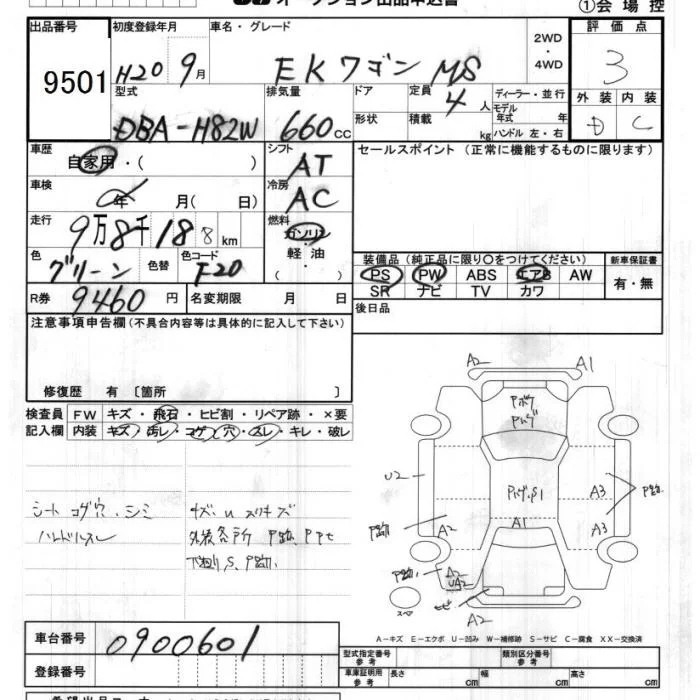 オークション出品申込書
①会場控
出品番号 9501
初度登録年月 H20 9月
車名・グレード EKワゴン MS
2WD
・
4WD
評価点 3
型式 DBA-H82W
排気量 660cc
ドア
定員 4人
ディーラー・並行
モデル年式 年
形状
積載 kg
ハンドル 左・右
外装 D
内装 C
車歴 自家用・( )
シフト AT
セールスポイント (正常に機能するものに限ります)
車検 年 月( 日)
冷房 AC
走行 9万8千188km
燃料 ガソリン
軽油
( )
色 グリーン
色替
色コード F20
装備品 (純正品に限り〇をつけてください)
新車保証書
PS PW ABS エアB AW
有・無
SR ナビ TV カワ
R券 9460円
名変期限 月 日
後日品
注意事項申告欄(不具合内容等は具体的に記入して下さい)
修復歴 有 〔箇所 〕
検査員 FW キズ・飛石・ヒビ割・リペア跡・×要
記入欄 内装 キズ・汚レ・コゲ(穴)・スレ・キレ・破レ
シート コゲ穴・シミ
ハンドルスレ
キズ U スリキズ
A2 A1
U2
A3
A1
A2
A3
A2
UA2
A2
スペア
A-キズ E-エクボ U-凹み W-補修跡 S-サビ C-腐食 XX-交換済
車台番号 0900601
登録番号
型式指定番号 参考
類別区分番号 参考
車庫証明用 参考 長さ cm 幅 cm 高さ cm